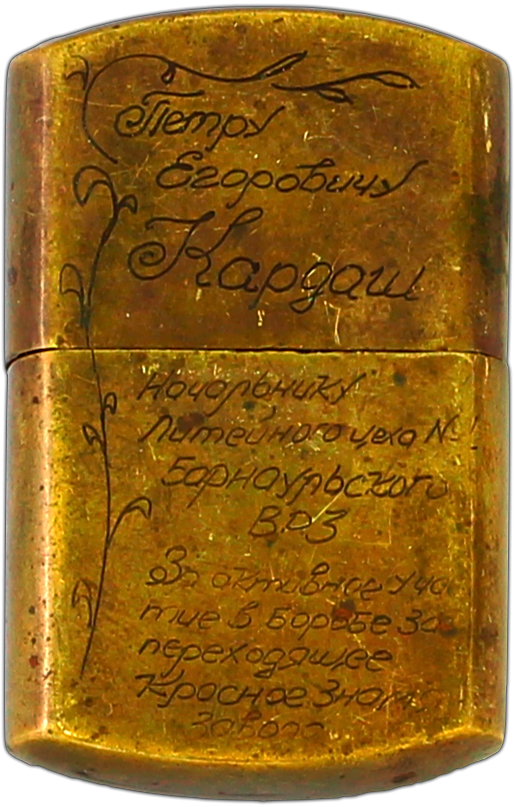 Петру
Егоровичу
Кардаш
Начальнику
Литейного цеха № 1
Барнаульского
ВРЗ
За активное уча
тие в борьбе за
переходящее
Красное Знамя
завода